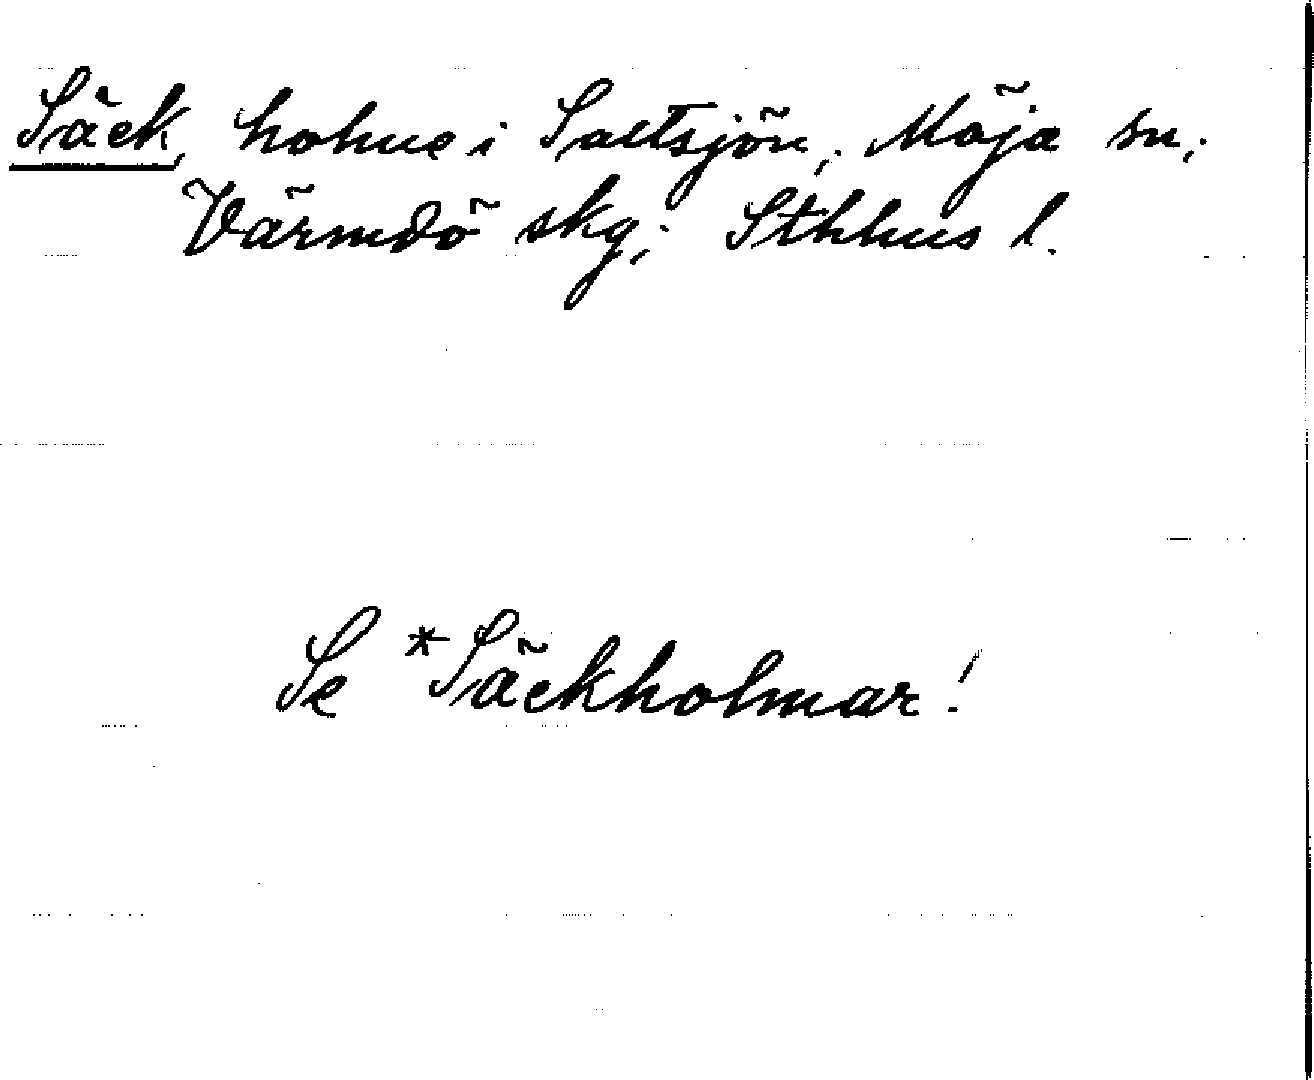 Säck, holme i Saltsjön, Möja sn;
Värmdö skg; Sthlms l.
Se *Säckholmar!